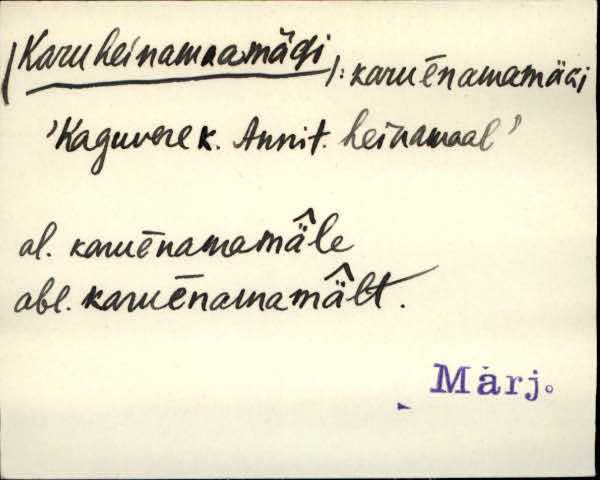 (Karuheinamaamägi): karuēnamamägi
'Kaguvere k. Annit. heinamaal'
al. karuēnamamä̂le
abl. karuēnamamä̂lt.
Märj.